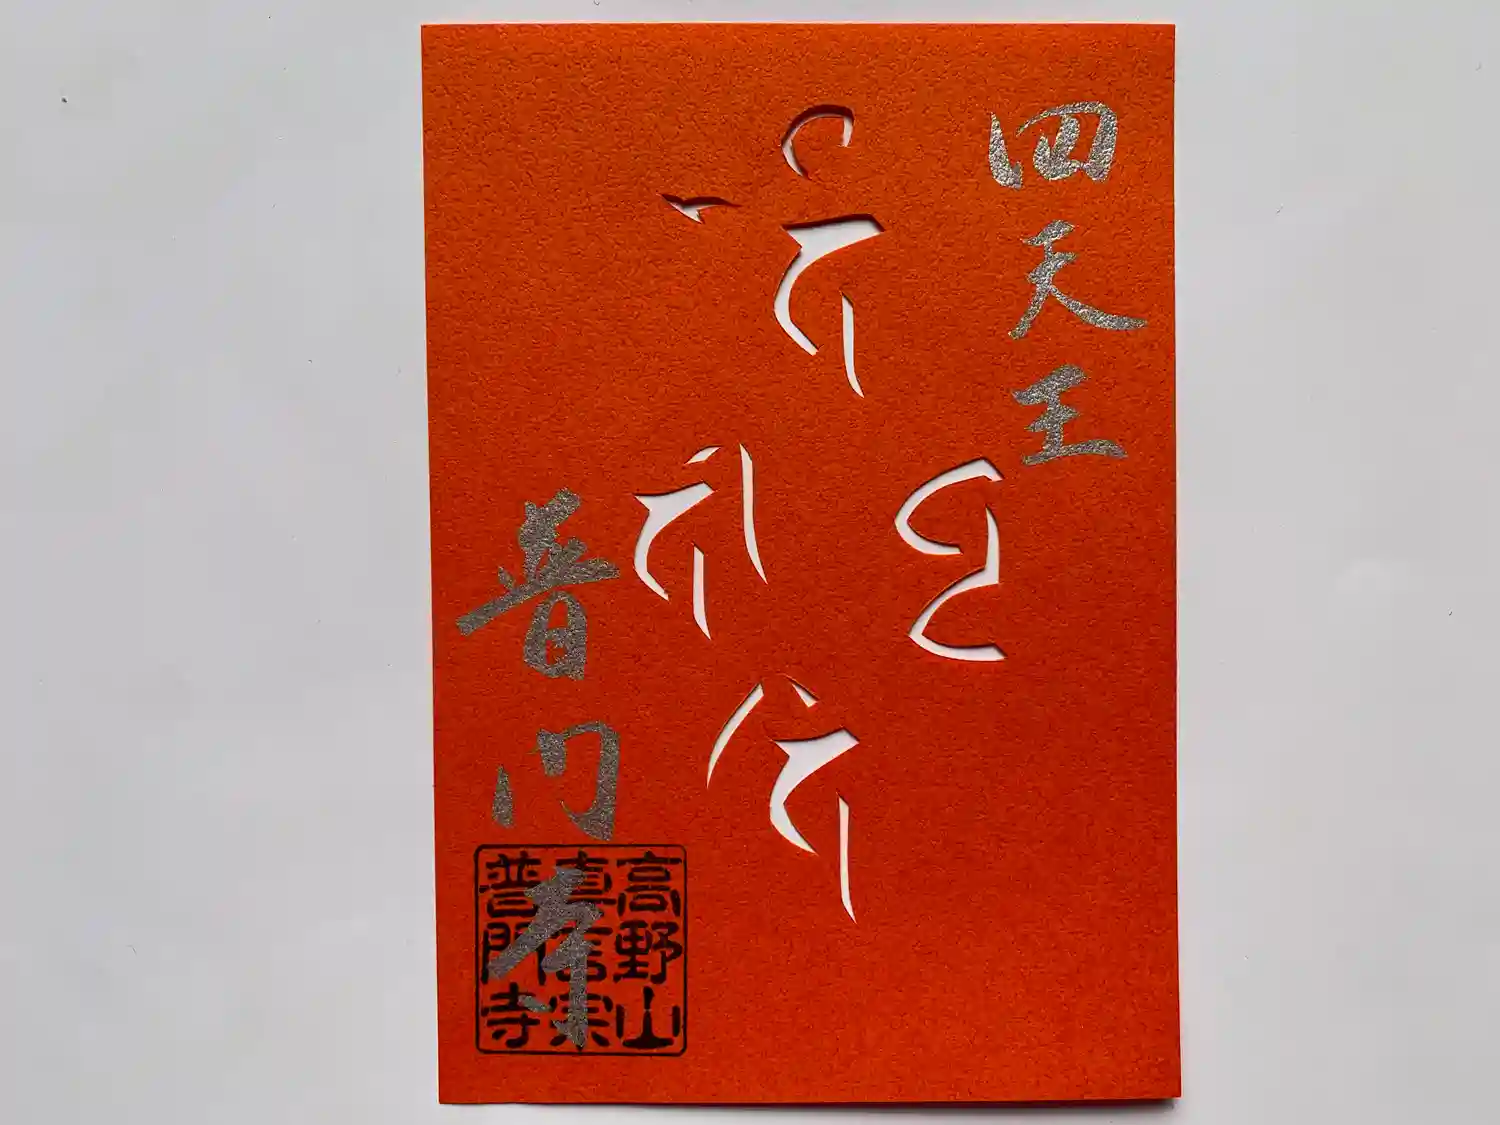 四天王
普門寺
高野山
真言宗
普門寺